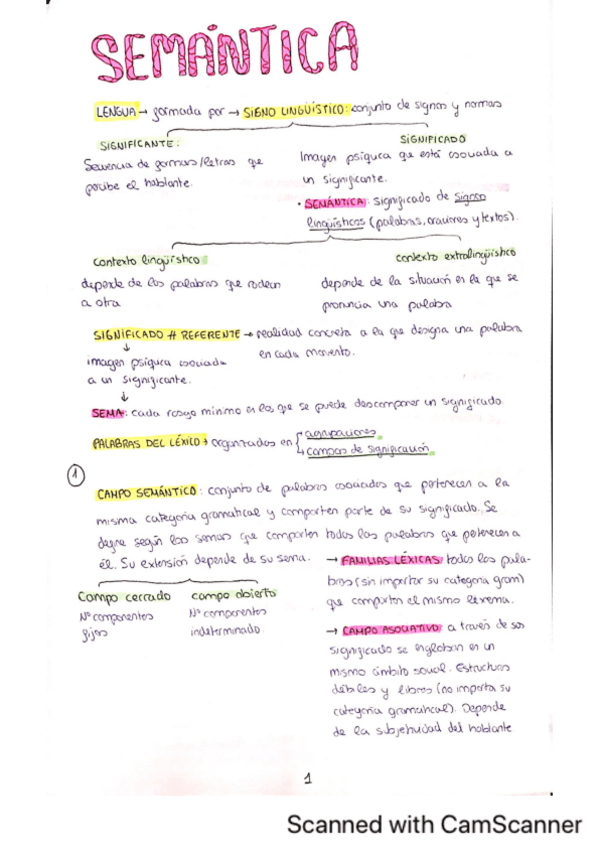 SEMÁNTICA
LENGUA → formada por → SIGNO LINGÜÍSTICO: conjunto de signos y normas
SIGNIFICANTE:
Secuencia de formas/letras que
percibe el hablante.
SIGNIFICADO
Imagen psíquica que está asociada a
un significante.
· SEMÁNTICA: significado de signos
lingüísticos (palabras, oraciones y textos).
Contexto lingüístico
depende de las palabras que rodean
a otra
contexto extralingüístico
depende de la situación en la que se
pronuncia una palabra
SIGNIFICADO ≠ REFERENTE → realidad concreta a la que designa una palabra
en cada momento.
↓
imagen psíquica asociada
a un significante.
↓
SEMA: cada rasgo mínimo en los que se puede descomponer un significado
PALABRAS DEL LÉXICO → organizadas en
agrupaciones
campos de significación
1
CAMPO SEMÁNTICO: conjunto de palabras asociadas que pertenecen a la
misma categoría gramatical y comparten parte de su significado. Se
define según los semas que comparten todas las palabras que pertenecen a
él. Su extensión depende de su sema.
Campo cerrado
Nº componentes
fijos
campo abierto
Nº componentes
indeterminado
→ FAMILIAS LÉXICAS: todas las pala-
bras (sin importar su categoría gram)
que comparten el mismo lexema.
→ CAMPO ASOCIATIVO: a través de sus
significado se engloban en un
mismo ámbito social. Estructuras
débiles y libres (no importa su
categoría gramatical). Depende
de la subjetividad del hablante
1
Scanned with CamScanner